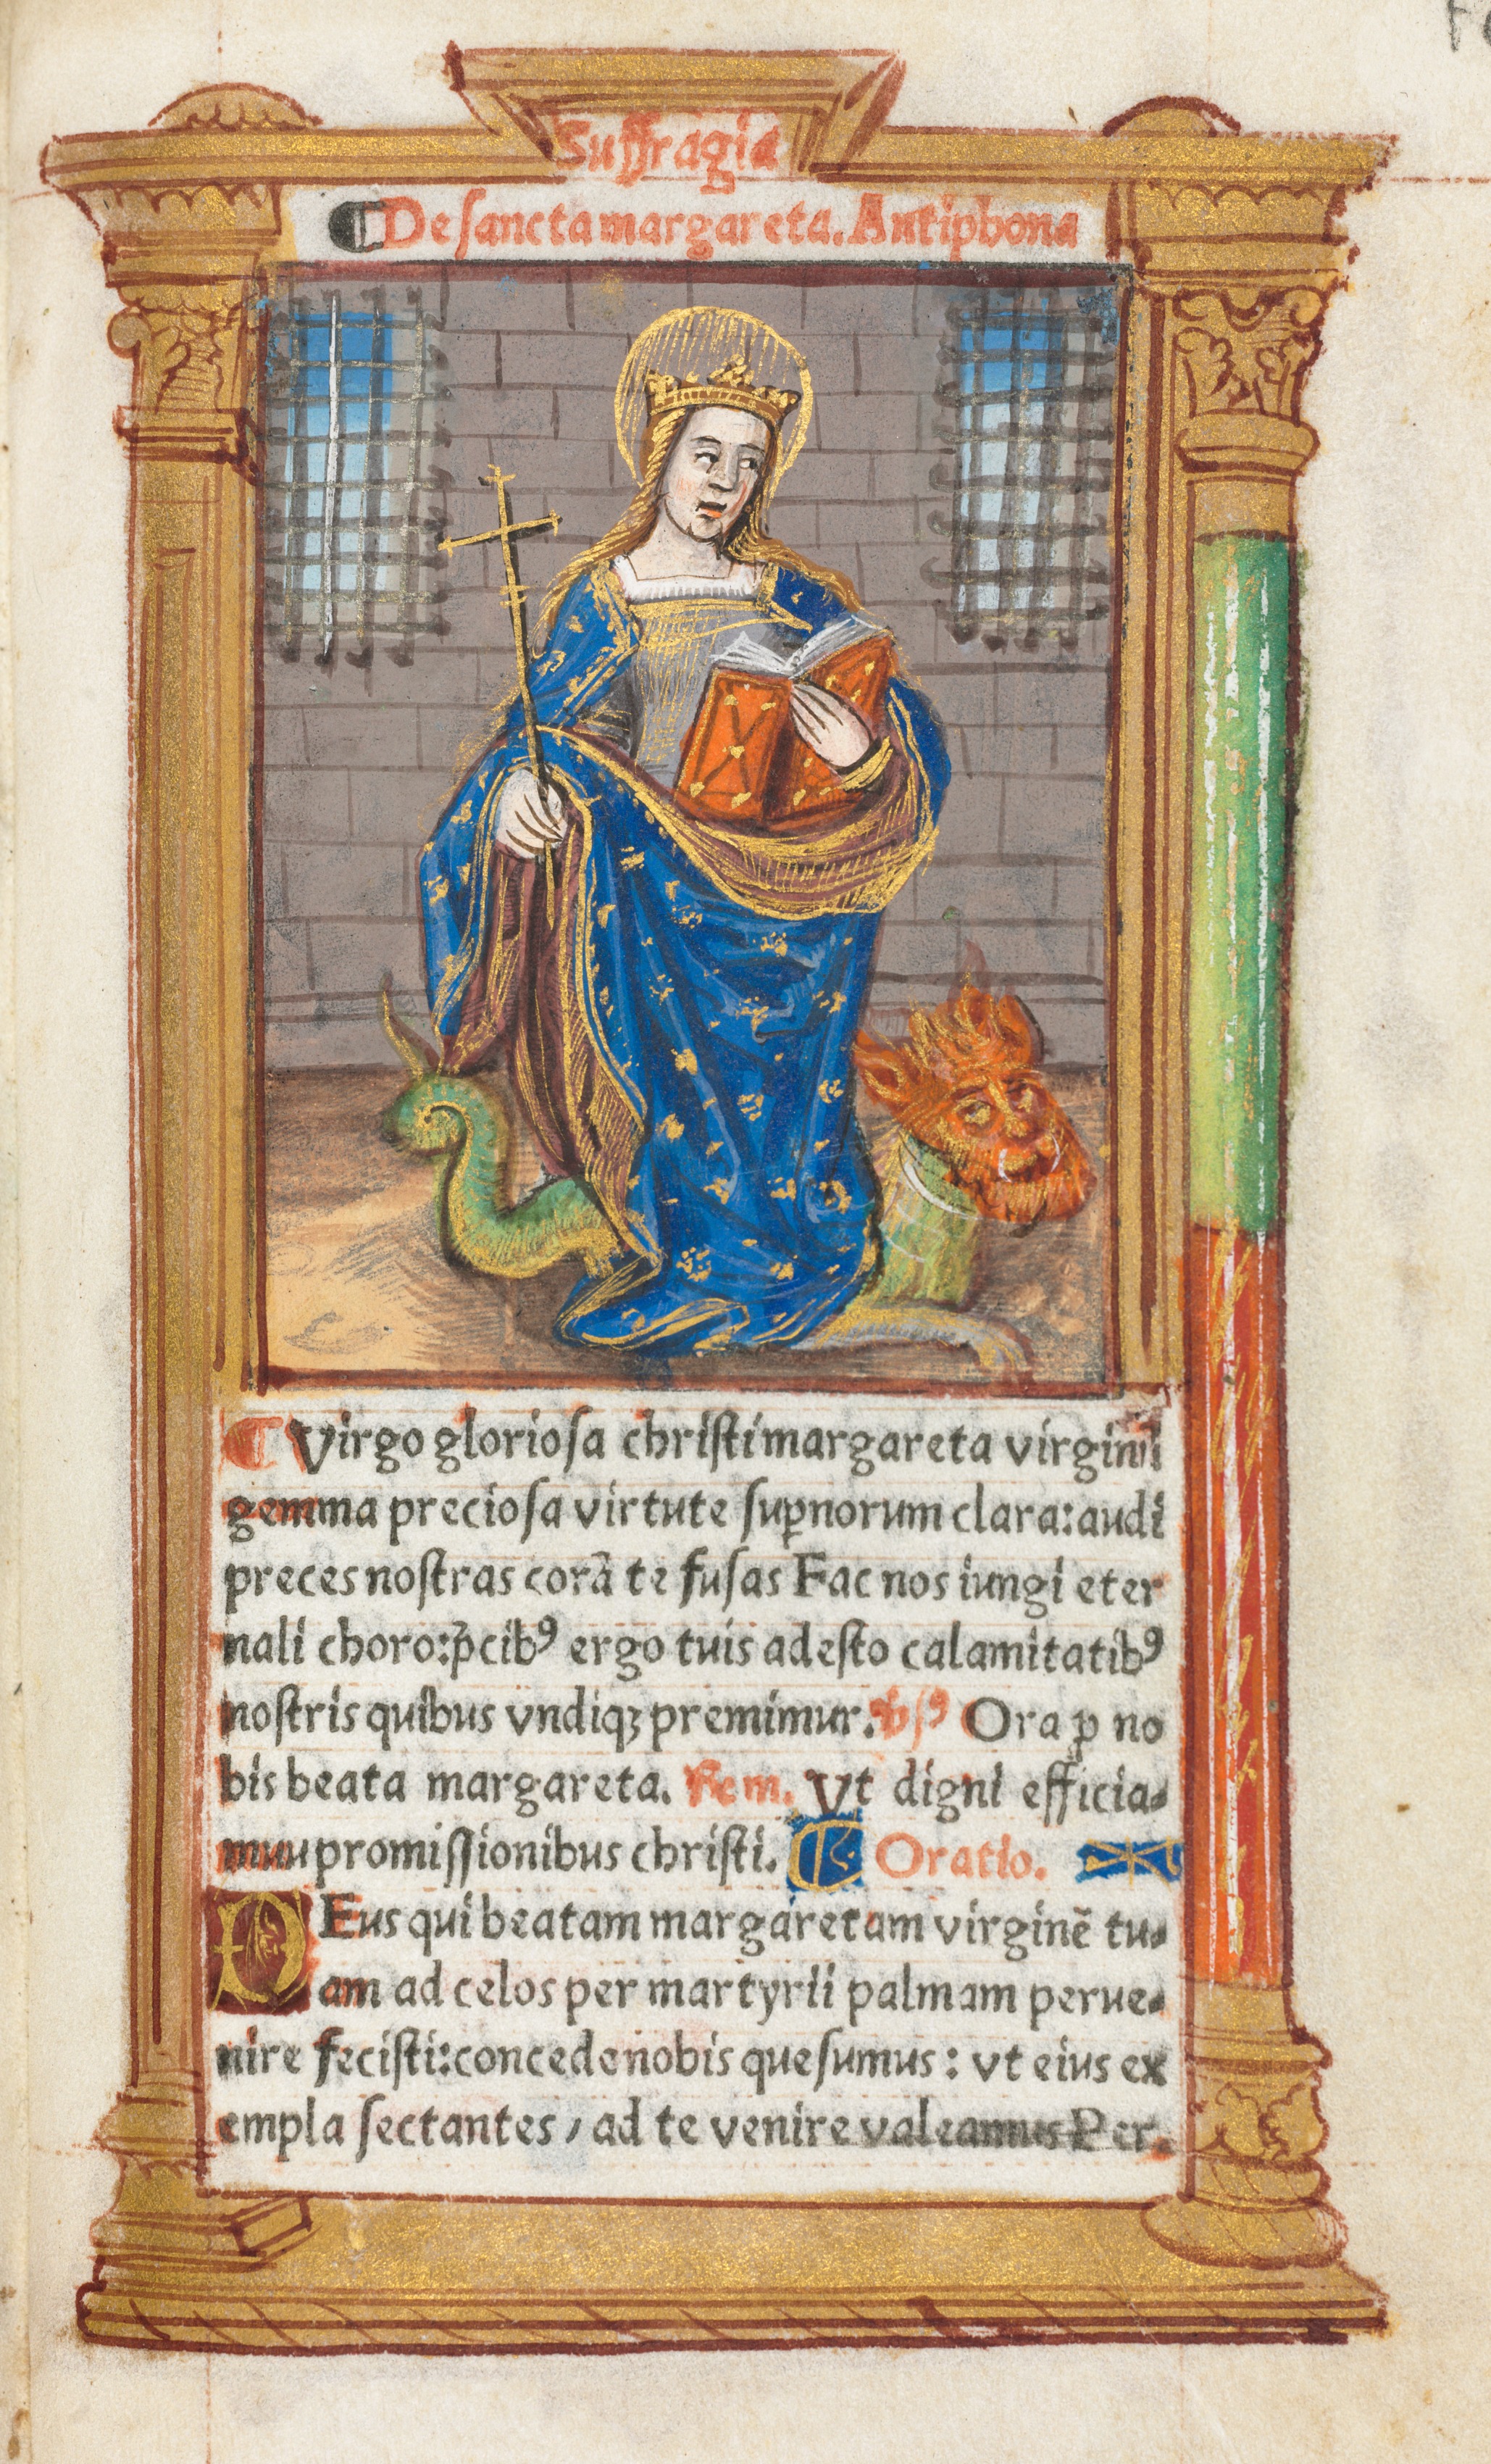 Suffragia
De sancta margareta. Antiphona
Virgo gloriosa christi margareta virginū
gemma preciosa virtute suꝑnorum clara: audi
preces nostras corā te fusas Fac nos iungi eter
nali choro: p̄cibꝰ ergo tuis adesto calamitatibꝰ
nostris quibus vndiqꝫ premimur. v̓sꝰ Ora ꝓ no
bis beata margareta. Rem. Vt digni efficia-
muu promissionibus christi. Oratio.
DEus qui beatam margaretam virginē tu-
am ad celos per martyrii palmam perue-
nire fecisti: concede nobis quesumus: vt eius ex
empla sectantes / ad te venire valeamus Per.